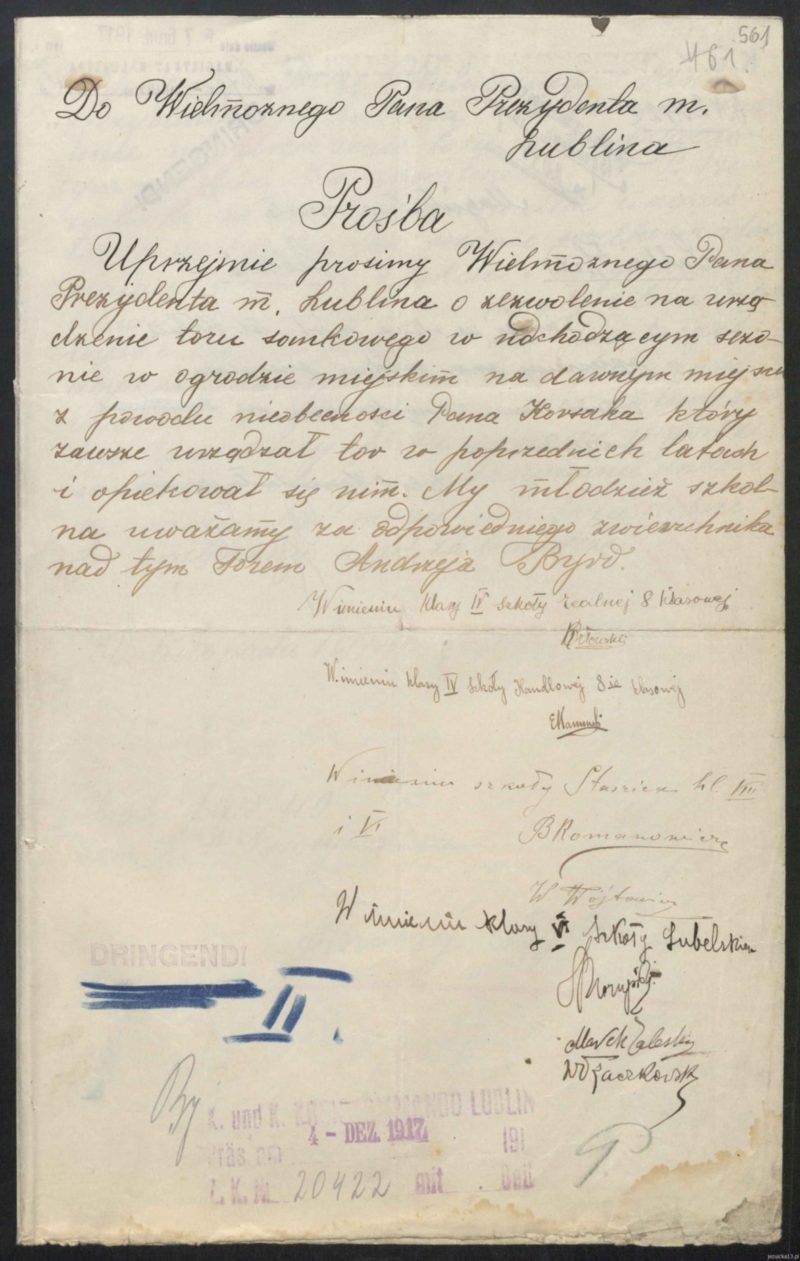 561
461.
Do Wielmożnego Pana Prezydenta m.
Lublina
Prośba
Uprzejmie prosimy Wielmożnego Pana
Prezydenta m. Lublina o zezwolenie na urzą-
dzenie toru sankowego w nadchodzącym sezo-
nie w ogrodzie miejskim na dawnym miejscu
z powodu nieobecności Pana Korsaka który
zawsze urządzał tor w poprzednich latach
i opiekował się nim. My młodzież szkol-
na uważamy za odpowiedniego zwierzchnika
nad tym Torem Andrzeja Byrd.
W imieniu klasy szkoły realnej 8 klasowej
W imieniu klasy IV szkoły Handlowej 8 io klasowej
EKamiński
W imieniu szkoły Staszica kl. VIII
i VI
BRomanowicz
W Wójtowicz
W imieniu klasy VI Szkoły Lubelskiej
Marek Zaleski
DRINGEND!
K. und K. KREISKOMMANDO LUBLIN
4 - DEZ. 1917 191
Präs. am
Z. K. Nr 20422 mit Beil
jezuicka13.pl